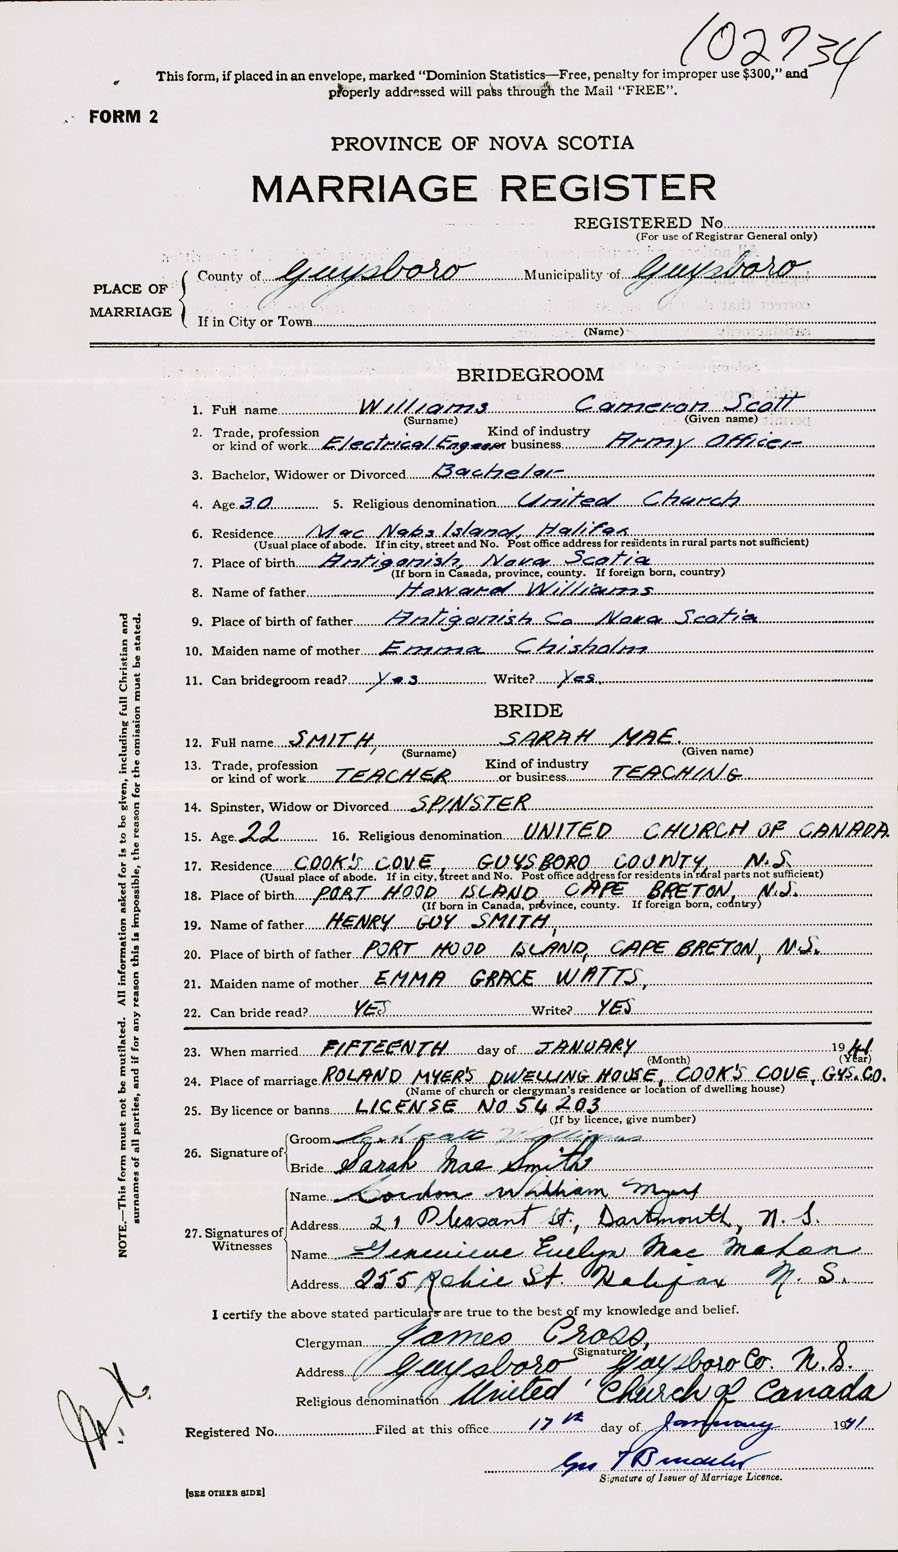 102734
This form, if placed in an envelope, marked "Dominion Statistics—Free, penalty for improper use $300," and
properly addressed will pass through the Mail "FREE".
FORM 2
PROVINCE OF NOVA SCOTIA
MARRIAGE REGISTER
REGISTERED No.
(For use of Registrar General only)
PLACE OF MARRIAGE
County of Guysboro Municipality of Guysboro
If in City or Town
(Name)
BRIDEGROOM
1. Full name Williams Cameron Scott
(Surname) (Given name)
2. Trade, profession or kind of work Electrical Engineer Kind of industry or business Army Officer
3. Bachelor, Widower or Divorced Bachelor
4. Age 30 5. Religious denomination United Church
6. Residence Mac Nabs Island, Halifax
(Usual place of abode. If in city, street and No. Post office address for residents in rural parts not sufficient)
7. Place of birth Antigonish, Nova Scotia
(If born in Canada, province, county. If foreign born, country)
8. Name of father Howard Williams
9. Place of birth of father Antigonish Co Nova Scotia
10. Maiden name of mother Emma Chisholm
11. Can bridegroom read? Yes Write? Yes
BRIDE
12. Full name SMITH, SARAH MAE.
(Surname) (Given name)
13. Trade, profession or kind of work TEACHER Kind of industry or business TEACHING
14. Spinster, Widow or Divorced SPINSTER
15. Age 22 16. Religious denomination UNITED CHURCH OF CANADA
17. Residence COOK'S COVE, GUYSBORO COUNTY, N.S.
(Usual place of abode. If in city, street and No. Post office address for residents in rural parts not sufficient)
18. Place of birth PORT HOOD ISLAND, CAPE BRETON, N.S.
(If born in Canada, province, county. If foreign born, country)
19. Name of father HENRY GUY SMITH,
20. Place of birth of father PORT HOOD ISLAND, CAPE BRETON, N.S.
21. Maiden name of mother EMMA GRACE WATTS,
22. Can bride read? YES Write? YES
23. When married FIFTEENTH day of JANUARY 1941
(Month) (Year)
24. Place of marriage ROLAND MYER'S DWELLING HOUSE, COOK'S COVE, GYS. CO.
(Name of church or clergyman's residence or location of dwelling house)
25. By licence or banns LICENSE NO 54203
(If by licence, give number)
26. Signature of
Groom Williams
Bride Sarah Mae Smith
27. Signatures of Witnesses
Name Gordon William Myers
Address 21 Pleasant St, Dartmouth, N.S.
Name Genevieve Evelyn Mac Mahon
Address 255 Robie St Halifax N.S.
I certify the above stated particulars are true to the best of my knowledge and belief.
Clergyman James Cross,
(Signature)
Address Guysboro Guysboro Co. N.S.
Religious denomination United Church of Canada
Registered No. Filed at this office 17th day of January 1941
Signature of Issuer of Marriage Licence.
[SEE OTHER SIDE]
NOTE.—This form must not be mutilated. All information asked for is to be given, including full Christian and
surnames of all parties, and if for any reason this is impossible, the reason for the omission must be stated.